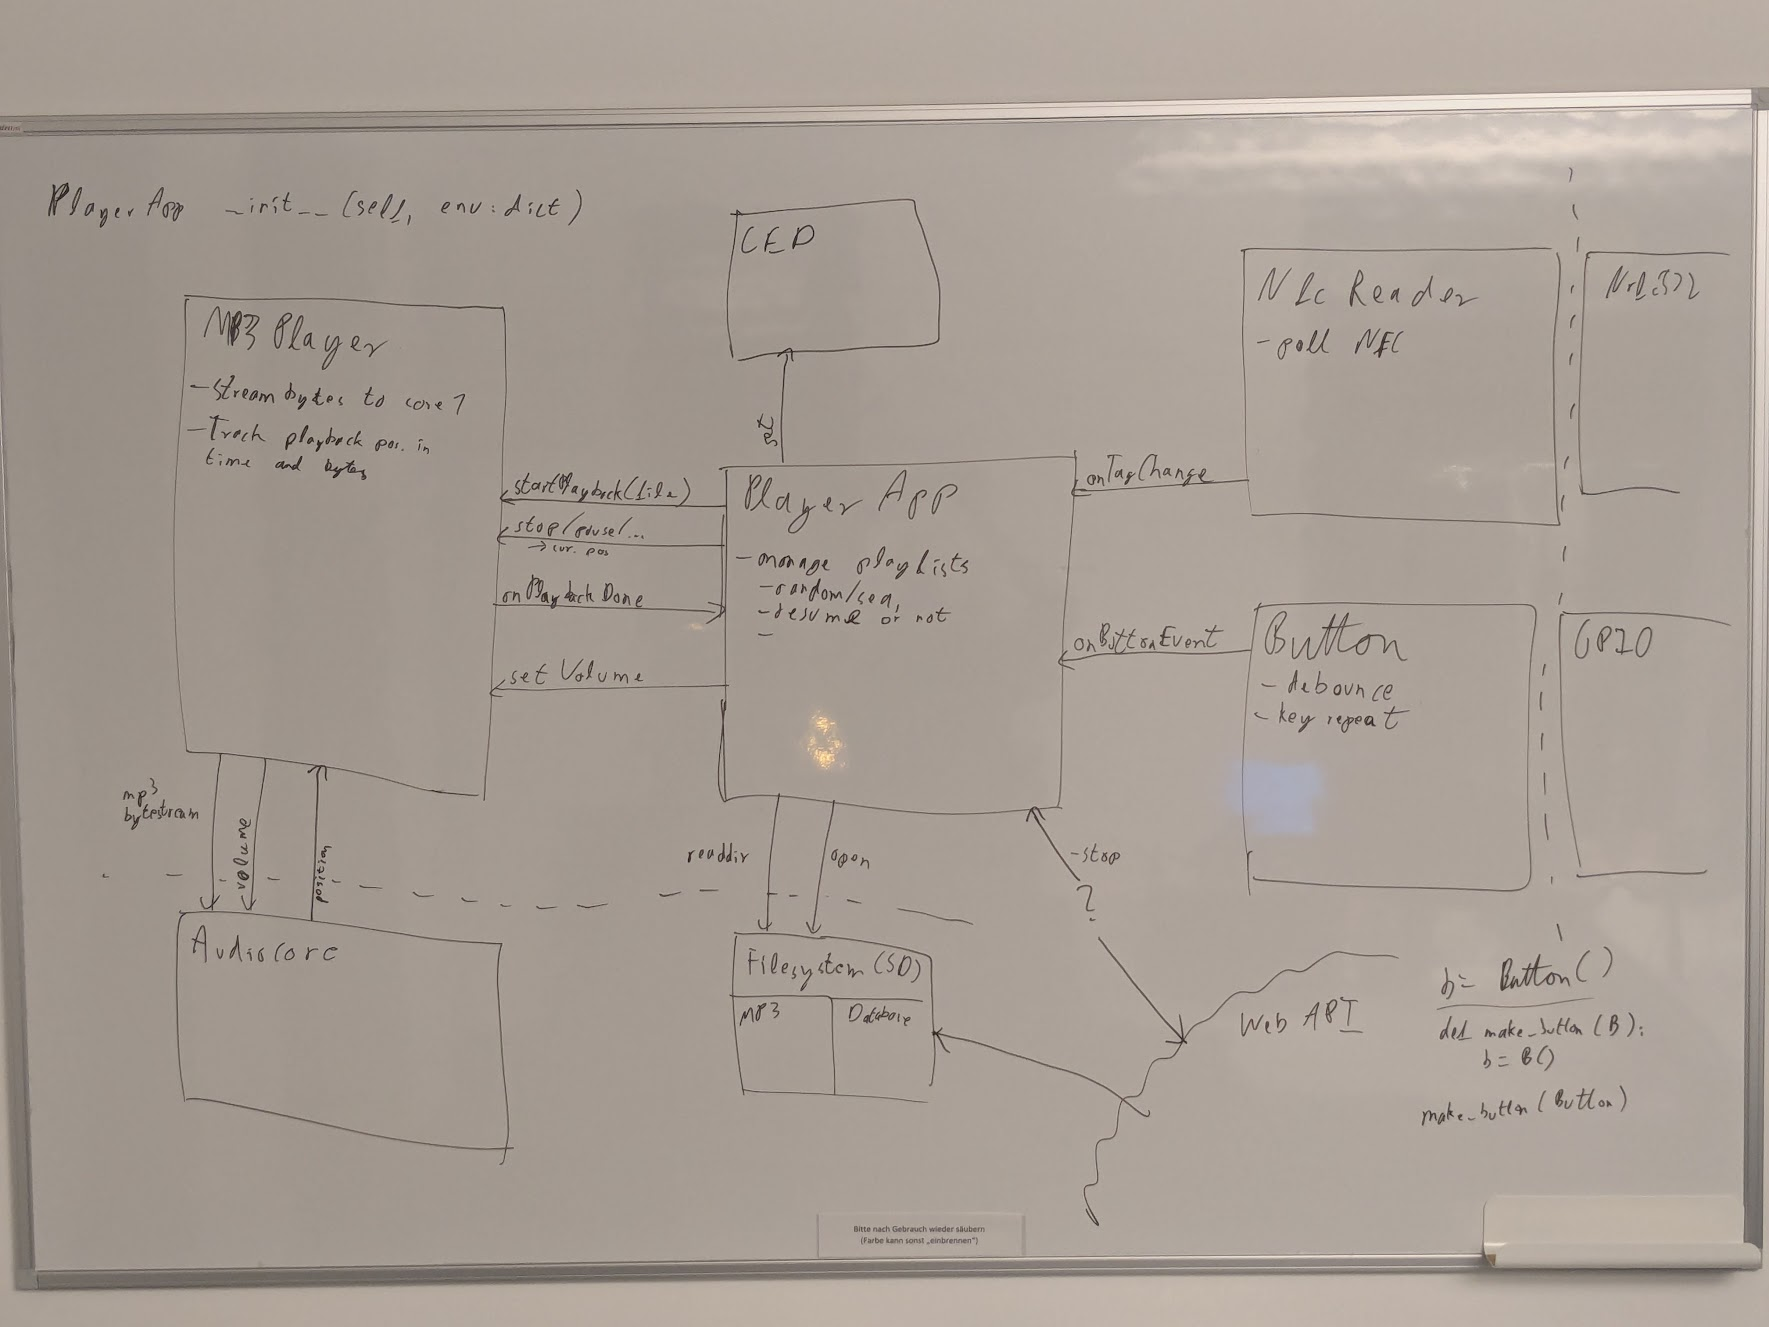 Player App __init__ (self, env: dict)
LED
MP3 Player
- Stream bytes to core 1
- Track playback pos. in
time and bytes
set
startPlayback(file)
stop/pause/...
→ cur. pos
onPlaybackDone
set Volume
Player App
- manage playlists
- random/seq.
- resume or not
-
onTagChange
Nfc Reader
- poll NFC
onButtonEvent
Button
- debounce
- key repeat
GPIO
mp3
bytestream
volume
position
readdir
open
- stop
?
Audiocore
Filesystem (SD)
MP3
Database
Web API
b = Button()
def make_button(B):
b = B()
make_button(Button)
Bitte nach Gebrauch wieder säubern
(Farbe kann sonst „einbrennen")